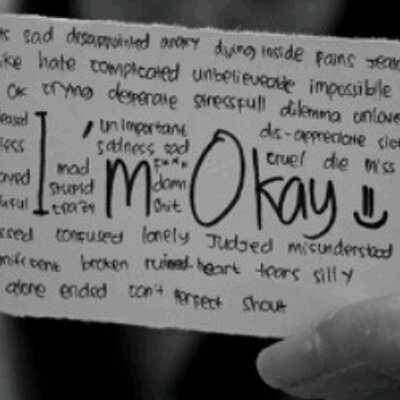 sad disappointed angry dying inside pains
hate complicated unbelieveable impossible
OK crying desperate stressfull dilemma unlove
unimportant dis-appreciate
sadness sad cruel die miss
I'm Okay
mad f***
stupid damn
crazy shit
confused lonely Judged misunderstood
broken ruined-heart tears silly
alone ended can't perfect shout